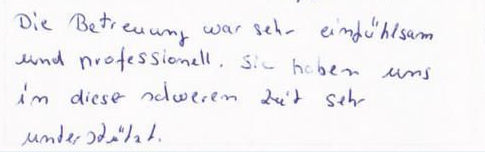 Die Betreuung war sehr einfühlsam
und professionell. Sie haben uns
in dieser schweren Zeit sehr
unterstützt.